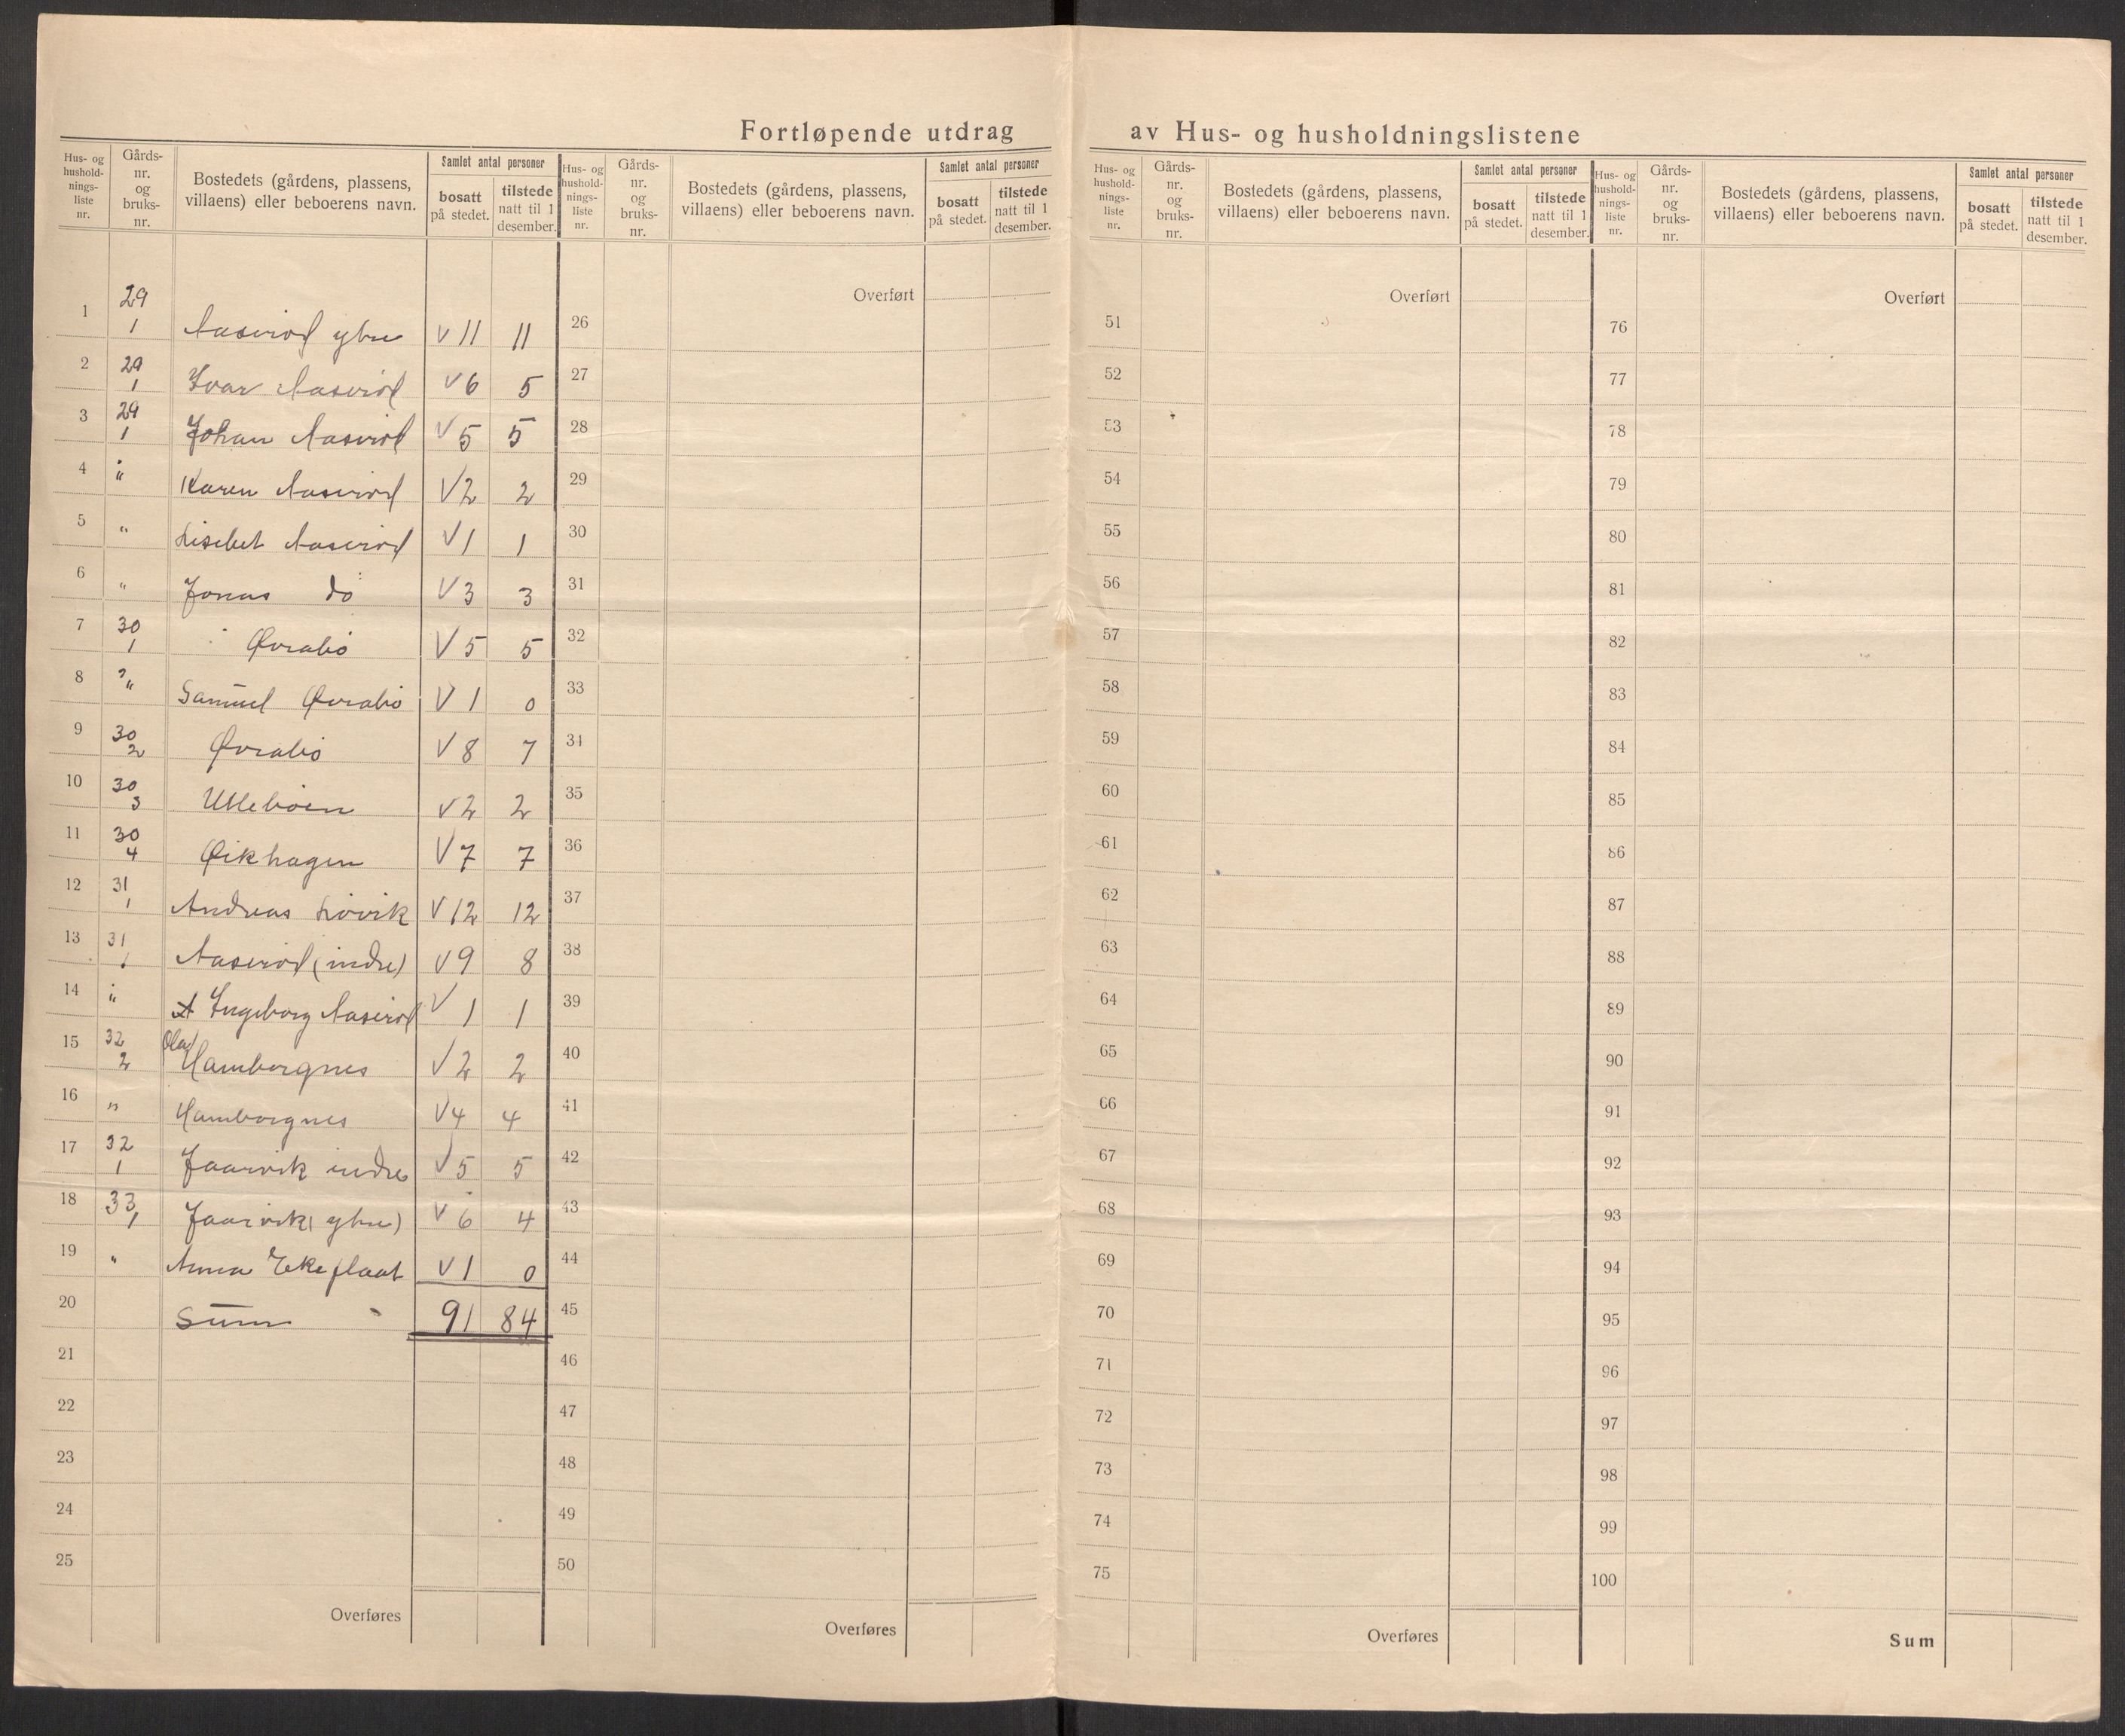 Fortløpende utdrag av Hus- og husholdningslistene
Hus- og hushold-nings-liste nr. Gårds-nr. og bruks-nr. Bostedets (gårdens, plassens, villaens) eller beboerens navn. Samlet antal personer bosatt på stedet. tilstede natt til 1 desember.
Hus- og hushold-nings-liste nr. Gårds-nr. og bruks-nr. Bostedets (gårdens, plassens, villaens) eller beboerens navn. Samlet antal personer bosatt på stedet. tilstede natt til 1 desember.
Hus- og hushold-nings-liste nr. Gårds-nr. og bruks-nr. Bostedets (gårdens, plassens, villaens) eller beboerens navn. Samlet antal personer bosatt på stedet. tilstede natt til 1 desember.
Hus- og hushold-nings-liste nr. Gårds-nr. og bruks-nr. Bostedets (gårdens, plassens, villaens) eller beboerens navn. Samlet antal personer bosatt på stedet. tilstede natt til 1 desember.
1 29 1 Aaserød ytre V 11 11
2 29 1 Ivar Aaserød V 6 5
3 29 1 Johan Aaserød V 5 5
4 " " Karen Aaserød V 2 2
5 " Lisebet Aaserød V 1 1
6 " Jonas do V 3 3
7 30 1 Øvrabø V 5 5
8 " " Samuel Øvrabø V 1 0
9 30 2 Øvrabø V 8 7
10 30 3 V 2 2
11 30 4 Øikhagen V 7 7
12 31 1 Andreas Løvik V 12 12
13 31 1 Aaserød (indre) V 9 8
14 " " Ingeborg Aaserød V 1 1
15 32 2 Olav Hamborgnes V 2 2
16 " Hamborgnes V 4 4
17 32 1 Jaarvik indre V 5 5
18 33 1 Jaarvik (ytre) V 6 4
19 " Anna Ekeflaat V 1 0
20 Sum 91 84
21
22
23
24
25
Overføres
Overført
26
27
28
29
30
31
32
33
34
35
36
37
38
39
40
41
42
43
44
45
46
47
48
49
50
Overføres
Overført
51
52
53
54
55
56
57
58
59
60
61
62
63
64
65
66
67
68
69
70
71
72
73
74
75
Overføres
Overført
76
77
78
79
80
81
82
83
84
85
86
87
88
89
90
91
92
93
94
95
96
97
98
99
100
Sum